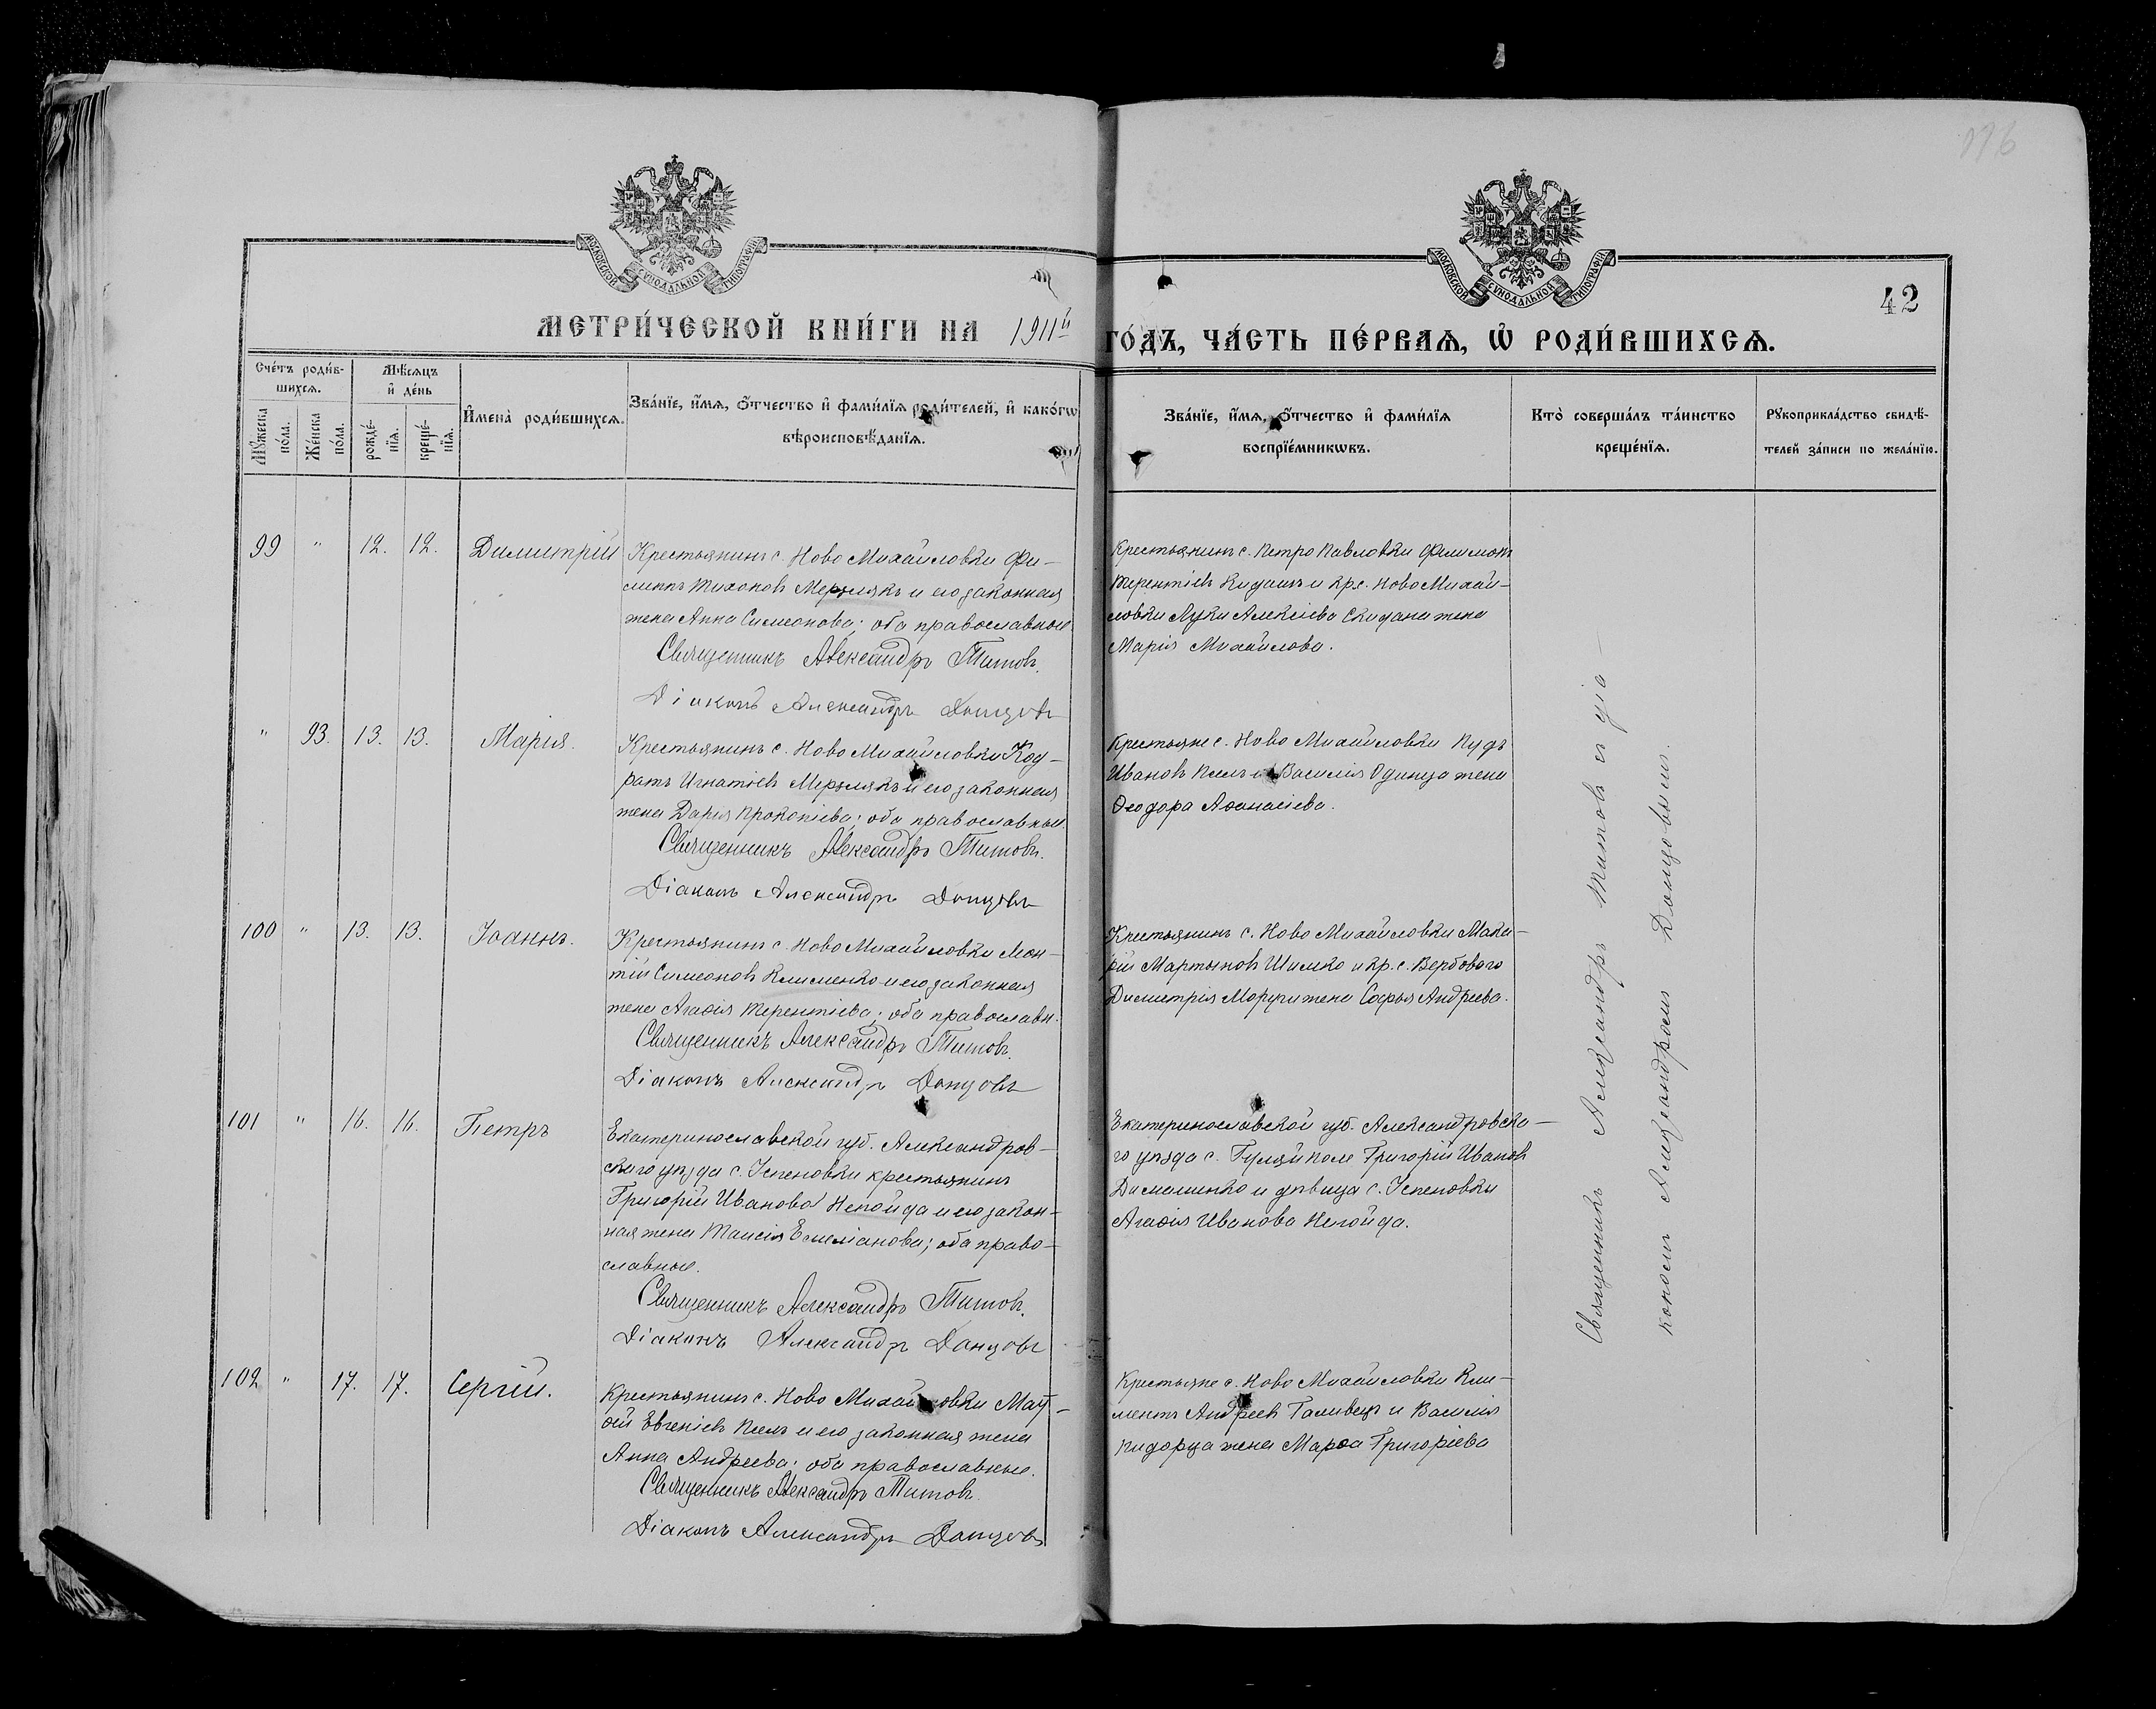 МОСКОВСКОЙ СѴНОДАЛЬНОЙ ТИПОГРАФІИ
МОСКОВСКОЙ СѴНОДАЛЬНОЙ ТИПОГРАФІИ
42
МЕТРИ́ЧЕСКОЙ КНИ́ГИ НА 1911й
ГО́ДЪ, ЧА́СТЬ ПЕ́РВАѦ, Ѡ҆ РОДИ́ВШИХСѦ.
Сче́тъ роди́в-
шихсѧ.
Мꙋ́жеска
по́ла.
Же́нска
по́ла.
Мѣ́сѧцъ
и҆ де́нь
рожде́-
нїѧ.
креще́-
нїѧ.
И҆мена̀ роди́вшихсѧ.
Зва́нїе, и҆́мѧ, ѻ҆́тчество и҆ фами́лїѧ роди́телей, и҆ како́гѡ
вѣроисповѣ́данїѧ.
Зва́нїе, и҆́мѧ, ѻ҆́тчество и҆ фами́лїѧ
воспрїе́мникѡвъ.
Кто̀ соверша́лъ та́инство
креще́нїѧ.
Рꙋкоприкла́дство свидѣ́-
телей за́писи по жела́нїю.
99 " 12. 12. Димитрій
Крестьянинъ с. Ново Михайловки Фи-
липпъ Тихоновъ Мерзлякъ и его законная
жена Анна Симеонова; оба православные
Священникъ Александръ Титовъ.
Діаконъ Александръ Донцовъ
Крестьянинъ с. Петро Павловки Филимонъ
Терентіевъ Кидашъ и кр. с. Ново Михай-
ловки Луки Алексіева Скидана жена
Марія Михайлова.
" 93. 13. 13. Марія.
Крестьянинъ с. Ново Михайловки Код-
ратъ Игнатіевъ Мерзлякъ и его законная
жена Дарія Прокопіева; оба православные.
Священникъ Александръ Титовъ.
Діаконъ Александръ Донцовъ
Крестьяне с. Ново Михайловки
Ивановъ и Василія Одинца жена
Ѳеодора Аѳанасіева.
100 " 13. 13. Іоаннъ.
Крестьянинъ с. Ново Михайловки Леон-
тій Симеоновъ Клименко и его законная
жена Агаѳія Терентіева; оба православн.
Священникъ Александръ Титовъ.
Діаконъ Александръ Донцовъ
Крестьянинъ с. Ново Михайловки Мака-
рій Мартыновъ Шимко и кр. с. Вербового
Димитрія жена Софья Андреева.
101 " 16. 16. Петръ
Екатеринославской губ. Александров-
скаго уѣзда с. Успеновки крестьянинъ
Григорій Иванова Непойда и его закон-
ная жена Таисія Емеліанова; оба право-
славные.
Священникъ Александръ Титовъ.
Діаконъ Александръ Донцовъ
Екатеринославской губ. Александровска-
го уѣзда с. Гуляйполе Григорій Ивановъ
и дѣвица с. Успеновки
Агаѳія Иванова Непойда.
102 " 17. 17. Сергій.
Крестьянинъ с. Ново Михайловки Мат-
ѳій Евгеніевъ и его законная жена
Анна Андреева; оба православные.
Священникъ Александръ Титовъ.
Діаконъ Александръ Донцовъ
Крестьяне с. Ново Михайловки Кли-
ментъ Андреевъ и Василія
жена Марѳа Григоріева
Священникъ Александръ Титовъ и діа-
кономъ Александромъ Донцовымъ.